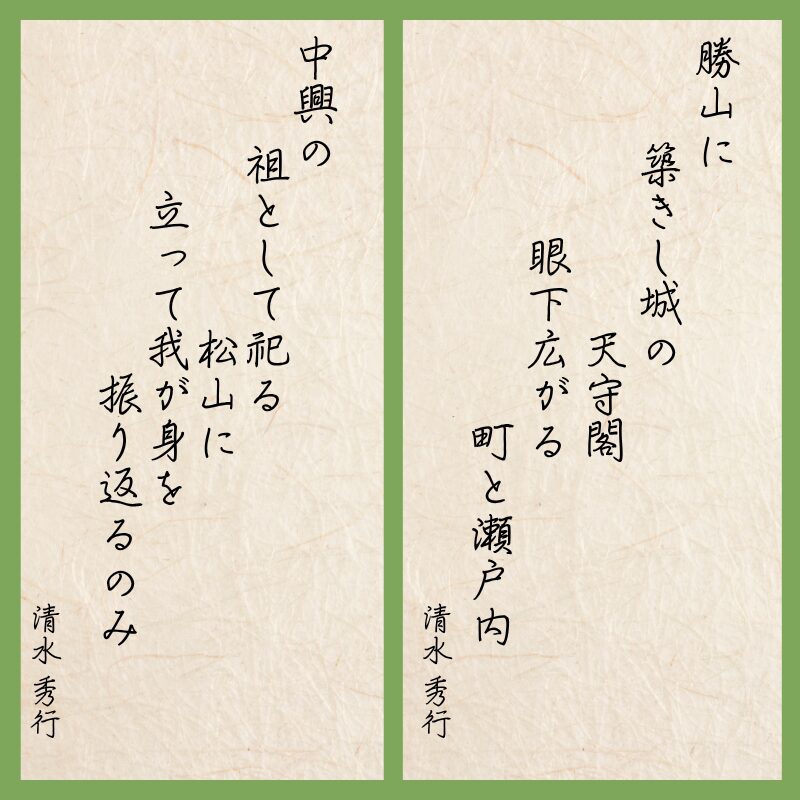 勝山に
築きし城の
天守閣
眼下広がる
町と瀬戸内
清水 秀行
中興の
祖として祀る
松山に
立って我が身を
振り返るのみ
清水 秀行